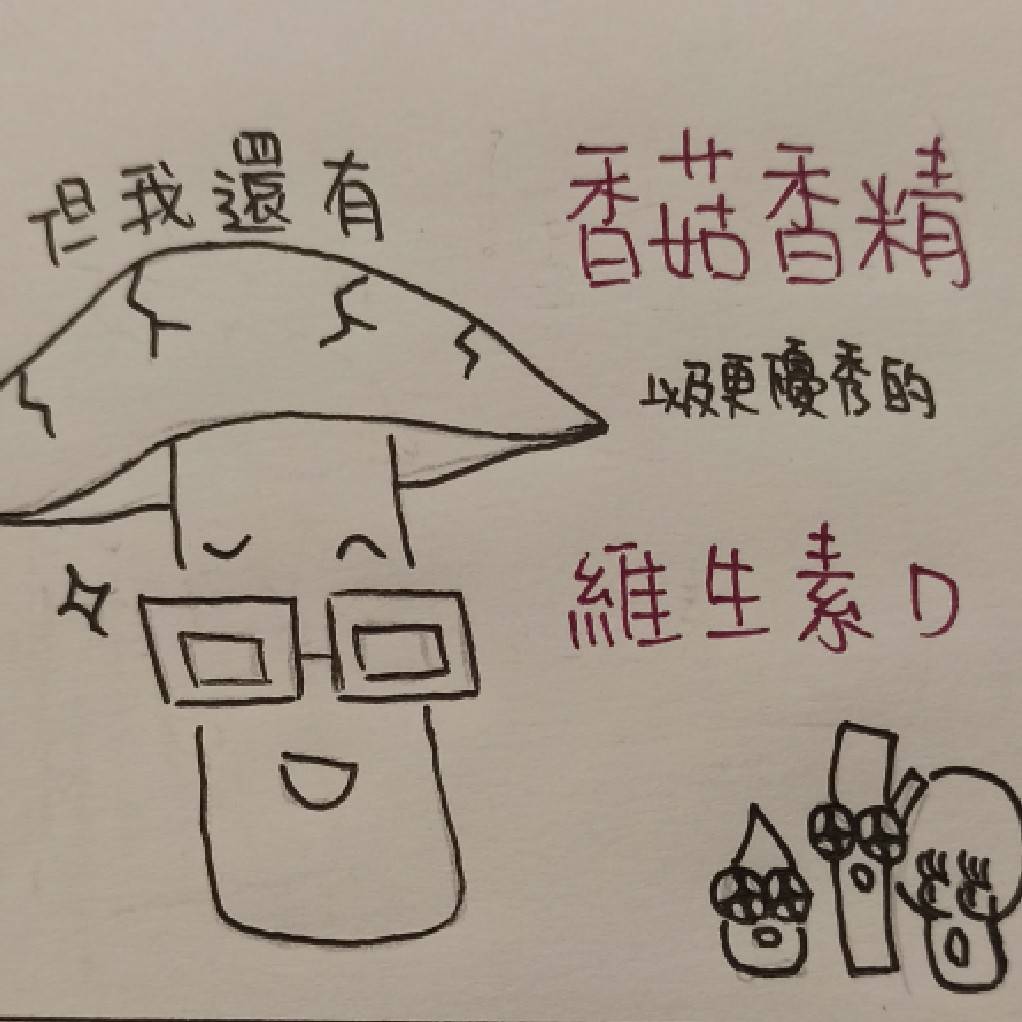 但我還有
香菇香精
以及更優秀的
維生素D